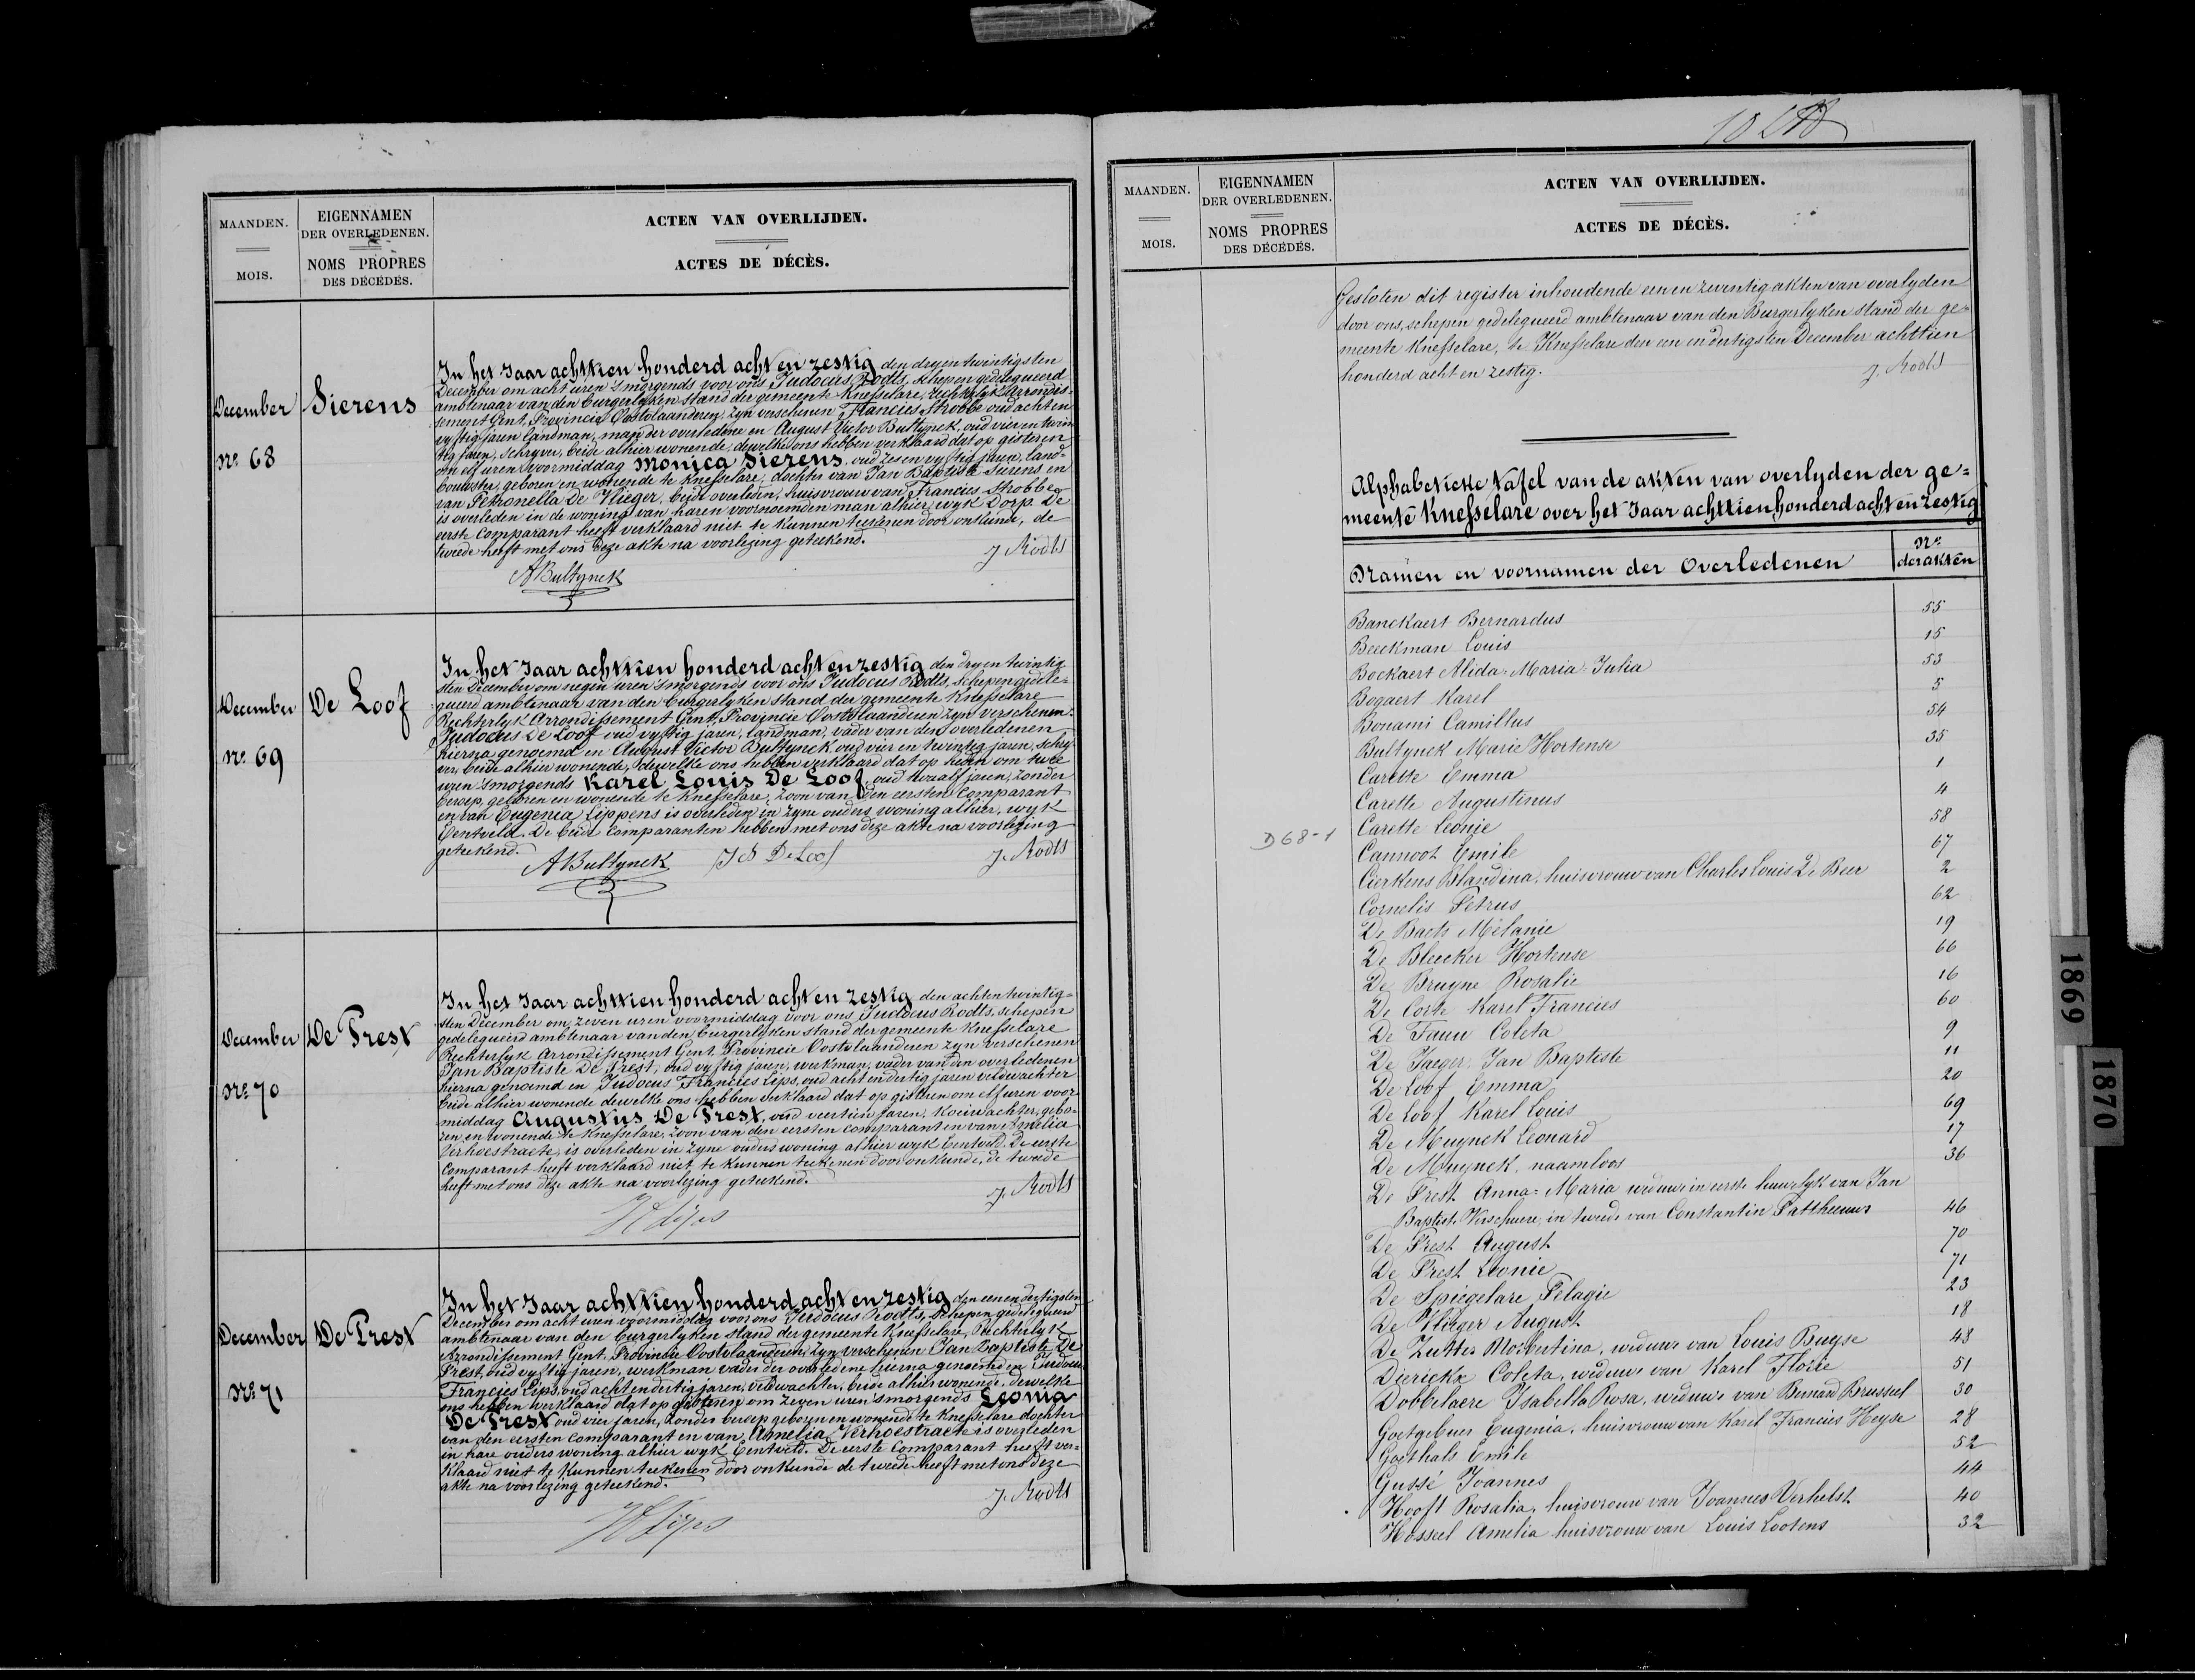 MAANDEN.
MOIS.
EIGENNAMEN
DER OVERLEDENEN.
NOMS PROPRES
DES DÉCÉDÉS.
ACTEN VAN OVERLIJDEN.
ACTES DE DÉCÈS.
December
Nr. 68
Sierens
In het Jaar achttien honderd acht en zestig den dryen twintigsten
December om acht uren 'smorgends voor ons Judocus Rodts, schepen gedelegueerd
ambtenaar van den burgerlyken stand der gemeente Knesselare, Rechterlyk Arrondis-
sement Gent, Provincie Oostvlaanderen, zyn verschenen Francies Strobbe oud acht en
vyftig jaren landman, man der overledene en August Victor Bultynck, oud vier en twin
tig jaren, schryver, beide alhier wonende, dewelke ons hebben verklaard dat op gisteren
om elf uren voormiddag Monica Sierens oud zes en vyftig jaren, land-
bouwster, geboren en wonende te Knesselare, dochter van Jan Baptiste Sierens en
van Petronella De Vlieger, beide overleden, huisvrouw van Francies Strobbe
is overleden in de woning van haren voornoemden man alhier, wyk Dorp. De
eerste comparant heeft verklaard niet te kunnen teekenen door onkunde, de
tweede heeft met ons deze akte na voorlezing geteekend.
J. Rodts
ABultynck
December
Nr. 69
De Loof
In het Jaar achttien honderd acht en zestig den dryen twintig
sten December om negen uren 'smorgends voor ons Judocus Rodts, Schepen gedele-
gueerd ambtenaar van den burgerlyken stand der gemeente Knesselare
Rechterlyk Arrondissement Gent, Provincie Oostvlaanderen zyn verschenen
Judocus De Loof oud vyftig jaren, landman, vader van den overledenen
hierna genoemd en August Victor Bultynck oud vier en twintig jaren, schry-
ver, beide alhier wonende, dewelke ons hebben verklaard dat op heden om twee
uren 'smorgends Karel Louis De Loof, oud twaalf jaren, zonder
beroep, geboren en wonende te Knesselare, zoon van den eersten Comparant
en van Eugenia Lippens is overleden in zyne ouders woning alhier, wyk
Eentveld. De beide Comparanten hebben met ons deze akte na voorlezing
geteekend.
ABultynck
De Loof
J. Rodts
December
Nr. 70
De Prest
In het Jaar achttien honderd acht en zestig den achten twintig-
sten December om zeven uren voormiddag voor ons Judocus Rodts, schepen
gedelegueerd ambtenaar van den burgerlyken stand der gemeente Knesselare
Rechterlyk Arrondissement Gent, Provincie Oostvlaanderen zyn verschenen
Jan Baptiste De Prest, oud vyftig jaren, werkman, vader van den overledenen
hierna genoemd en Judocus Francies Lips, oud acht en dertig jaren veldwachter
beide alhier wonende dewelke ons hebben verklaard dat op gisteren om elf uren voor
middag Augustus De Prest, oud veertien jaren, koeiwachter, gebo-
ren en wonende te Knesselare, zoon van den eersten comparant en van Amelia
Verhoestraete, is overleden in zyne ouders woning alhier wyk Eentveld. De eerste
Comparant heeft verklaard niet te kunnen teekenen door onkunde, de tweede
heeft met ons deze akte na voorlezing geteekend.
J. Rodts
Lips
December
Nr. 71
De Prest
In het Jaar achttien honderd acht en zestig den een en dertigsten
December om acht uren voormiddag voor ons Judocus Rodts, Schepen gedelegueerd
ambtenaar van den burgerlyken stand der gemeente Knesselare, Rechterlyk
Arrondissement Gent, Provincie Oostvlaanderen zyn verschenen Jan Baptiste De
Prest, oud vyftig jaren, werkman vader der overledene hierna genoemd en Judocus
Francies Lips, oud acht en dertig jaren, veldwachter, beide alhier wonende, dewelke
ons hebben verklaard dat op gisteren om zeven uren 'smorgends Leonia
De Prest oud vier jaren, zonder beroep geboren en wonende te Knesselare dochter
van den eersten comparant en van Amelia Verhoestraete is overleden
in hare ouders woning alhier wyk Eentveld. De eerste Comparant heeft ver-
klaard niet te kunnen teekenen door onkunde de tweede heeft met ons deze
akte na voorlezing geteekend.
J. Rodts
Lips
MAANDEN.
MOIS.
EIGENNAMEN
DER OVERLEDENEN.
NOMS PROPRES
DES DÉCÉDÉS.
ACTEN VAN OVERLIJDEN.
ACTES DE DÉCÈS.
Gesloten dit register inhoudende een en zeventig akten van overlyden
door ons, schepen gedelegueerd ambtenaar van den Burgerlyken stand der ge-
meente Knesselare, te Knesselare den een en dertigsten December achttien
honderd acht en zestig.
J. Rodts
Alphabetieke tafel van de akten van overlyden der ge=
meente Knesselare over het Jaar achttien honderd acht en zestig
Namen en voornamen der Overledenen
Nr. der akten
Banckaert Bernardus 55
Beeckman Louis 15
Bockaert Alida-Maria-Julia 53
Bogaert Karel 5
Bonami Camillus 54
Bultynck Marie Hortense 35
Carette Emma 1
Carette Augustinus 4
Carette Leonie 58
D68-1
Cannoot Emile 67
Cierkens Blandina, huisvrouw van Charles Louis De Beer 2
Cornelis Petrus 62
De Baets Mélanie 19
De Bleecker Hortense 66
De Bruyne Rosalie 16
De Corte Karel Francies 60
De Fauw Coleta 9
De Jaeger Jan Baptiste 11
De Loof Emma 20
De Loof Karel Louis 69
De Muynck Leonard 17
De Muynck, naamloos 36
De Prest Anna-Maria weduwe in eerste huwelyk van Jan
Baptiste Verschuere, in tweede van Constantin Pattheeuws 46
De Prest August 70
De Prest Leonie 71
De Spiegelare Pelagie 23
De Vlieger August 18
De Zutter Norbertina, weduwe van Louis Buyse 48
Dierickx Coleta, weduwe van Karel Florie 51
Dobbelaere Isabella Rosa, weduwe van Bernard Brusseel 30
Goetgebuer Eugenia, huisvrouw van Karel Francies Heyse 28
Goethals Emile 52
Gussé Joannes 44
Hooft Rosalia, huisvrouw van Joannes Verhelst 40
Hosseel Amelia huisvrouw van Louis Lootens 32
1869
1870